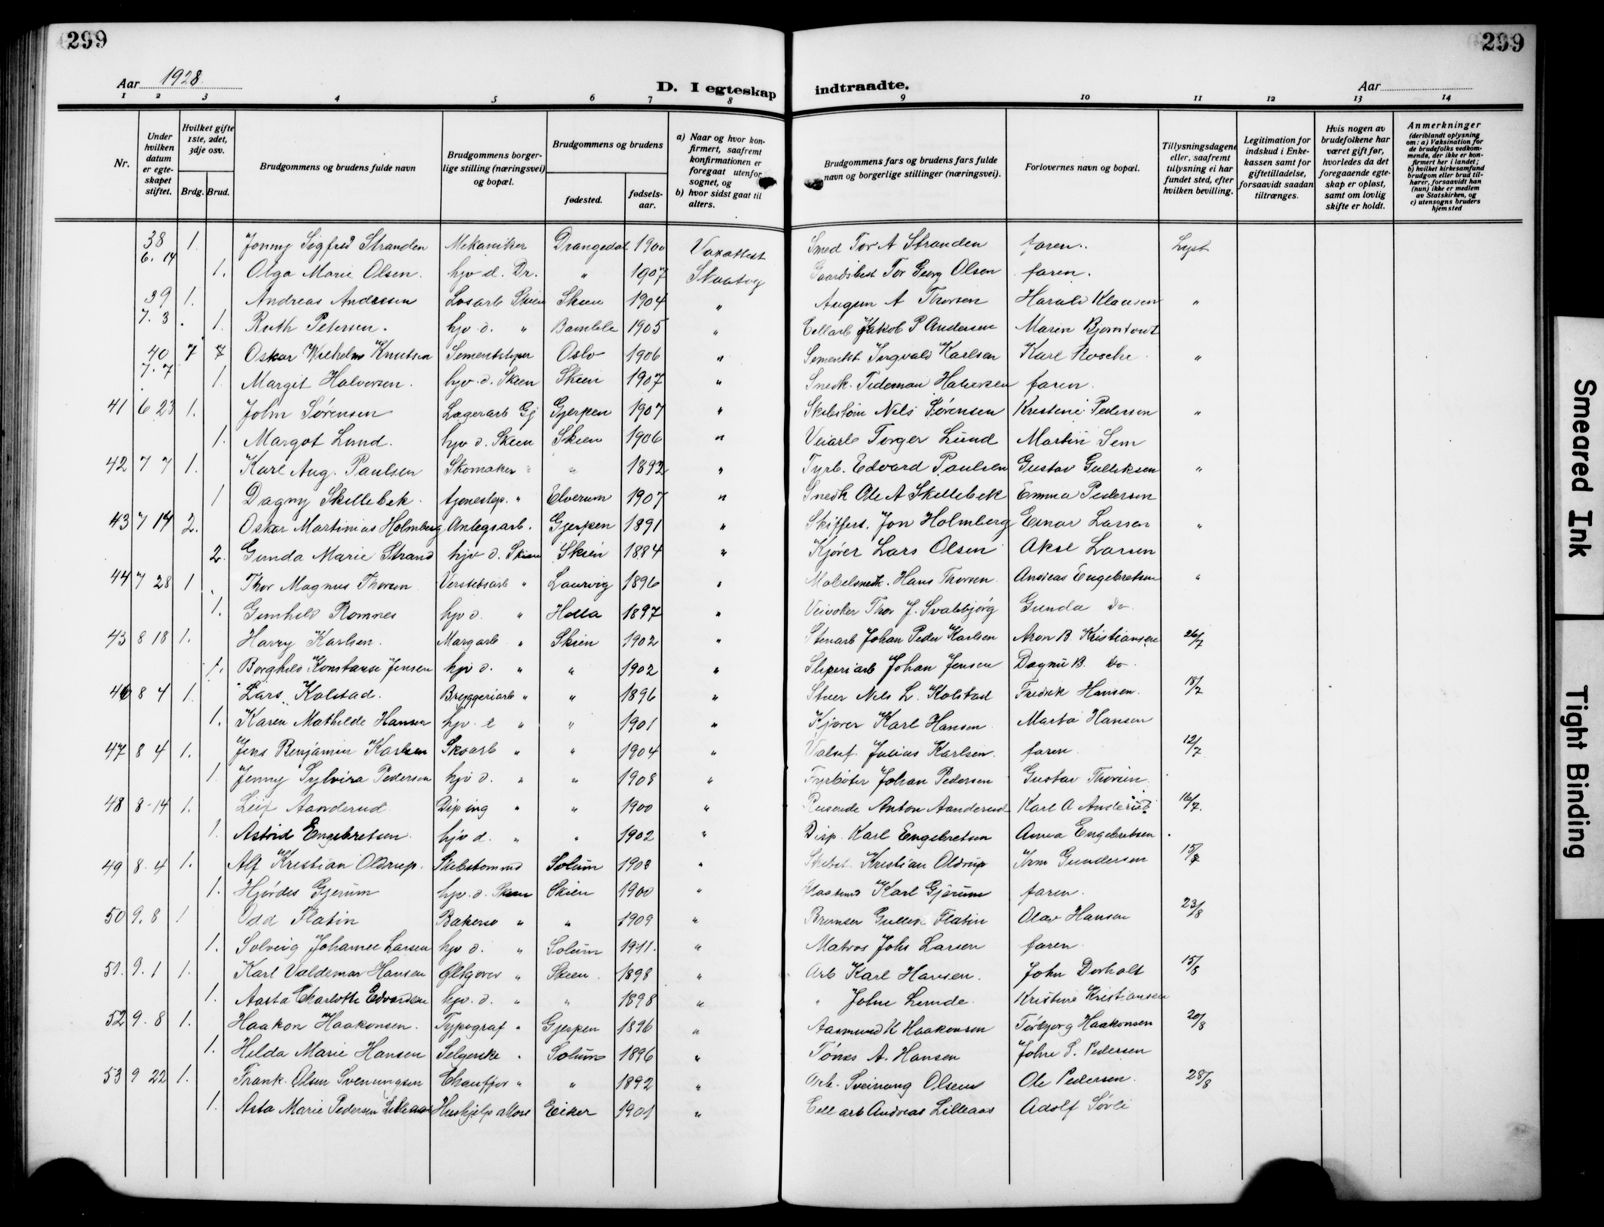 299 299
Aar 1928 D. I egteskap indtraadte. Aar
1 2 3 4 5 6 7 8 9 10 11 12 13 14
Nr.
Under hvilken datum er egteskapet stiftet.
Hvilket gifte 1ste, 2det, 3dje osv.
Brdg. Brud.
Brudgommens og brudens fulde navn
Brudgommens borgerlige stilling (næringsvei) og bopæl.
Brudgommens og brudens
fødested.
fødselsaar.
a) Naar og hvor konfirmert, saafremt konfirmationen er foregaat utenfor sognet, og
b) hvor sidst gaat til alters.
Brudgommens fars og brudens fars fulde navn og borgerlige stillinger (næringsvei).
Forlovernes navn og bopæl.
Tillysningsdagene eller, saafremt tillysning ei har fundet sted, efter hvilken bevilling.
Legitimation for indskud i Enkekassen samt for giftetilladelse, forsaavidt saadan tiltrænges.
Hvis nogen av brudefolkene har været gift før, hvorledes da det foregaaende egteskap er opløst, samt om lovlig skifte er holdt.
Anmerkninger
(deriblandt oplysning om: a) Vaksination for de brudefolks vedkommende, der ikke er konfirmert her i landet; b) hvilket kirkesamfund brudgom eller brud tilhører, forsaavidt han (hun) ikke er medlem av Statskirken, og c) utensogns bruders hjemsted
38 6. 14 1. Jonny Sigfred Stranden Mekaniker Drangedal 1900 Smed Tor A Stranden faren. Lyst
1. Olga Marie Olsen. hjv d. Dr. " 1907 Tor Georg Olsen faren.
39 7. 3 1. Andreas Andresen Skien Skien 1904 " August A Thorsen Harald Klausen "
1. Ruth Petersen. hjv d. " Bamble 1905 " Cellarb Jakob P Andersen Maren
40 7. 7 Oskar Wilhelm Knutsen Oslo 1906 " Ingvald Karlsen Karl "
1. Margit Halvorsen. hjv. d. Skien Skien 1907 " Snedk. Tideman Halvorsen faren.
41 6 23 1. John Sørensen Lagerarb Gj Gjerpen 1907 " Nils Sørensen Kristine Pedersen "
1. Margot Lund. hjv d. Skien Skien 1906 " Torger Lund Martin Sem
42 7 7 1. Karl Aug. Paulsen Skomaker " " 1892 " Fyrb. Edvard Paulsen Gustav Gulliksen "
1 Dagny Skillebek. tjenestep. " Elverum 1907 " Snedk Ole A Skillebek Emma Pedersen
43 7 14 2. Oskar Martinius Holmberg Anlegsarb. Gjerpen 1891 " Skiffers. Jon Holmberg Einar Larsen "
2. Gunda Marie Strand hjv d. Skien Skien 1884 " Kjører Lars Olsen Aksel Larsen
44 7 28 1 Thor Magnus Thorsen Verstedsarb " Laurvig 1896 " Møbelsnedk. Hans Thorsen Andreas Engebretsen "
1. Gunhild Romnes hjv d. " Holla 1897 " Veivokter Thor J. Svalebjørg Gunda do
45 8 18 1. Harry Karlsen. Margarb " Skien 1902 " Stenarb Johan Peder Karlsen Aron B. Kristiansen 26/7
1. Borghild Konstanse Jensen hjv d. " " 1902 " Sliperiarb Johan Jensen Dagny B. do
46 8 4 1. Lars Kolstad. Bryggeriarb " " 1896 " Nils L. Kolstad Fredrik Hansen. 18/7
1. Karen Mathilde Hansen hjv. d " " 1901 " Kjører Karl Hansen Marta Hansen
47 8 4 1. Jens Benjamin Karlsen Skoarb " " 1904 " Julius Karlsen. faren. 12/7
1. Jenny Sylvira Pedersen hjv d. " " 1908 " Fyrbøter Johan Pedersen Gustav Thorsen.
48 8-14 1. Leif Aanderud Diping " " 1900 " Reisende Anton Aanderud Karl A 16/7
1. Astrid Engebretsen hjv d. " " 1902 " Disp. Karl Engebretsen Anna Engebretsen
49 8-4 1. Alf Kristian Oldrup. Skibstømmd Solum 1908 " Kristian Oldrup Gundersen
1. Hjørdis Gjerum hjv. d. Skien Skien 1900 " Karl Gjerum faren.
50 9. 8 1 Odd Flatin Bakersv " " 1909 " Flatin Olav Hansen 23/8
1. Solveig Johanne Larsen hjv d. " Solum 1911. " Matros Johs Larsen faren
51. 9. 1 1. Karl Valdemar Hansen Ølkjører " Skien 1898 " Arb Karl Hansen. John Dorholt 15/8
1. Aasta Charlotte Edvardsen hjv. d. " " 1898 " " John Lunde. Kristine Kristiansen
52 9. 8 1. Haakon Haakonsen. Typograf " Gjerpen 1896 " Aasmund K Haakonsen Torbjørg Haakonsen 20/8
1. Helda Marie Hansen Selgerske " Solum 1896 " Tönes A. Hansen Johs S. Pedersen
53 9 22 1. Frank. Olsen Svenungsen Chauffør " " 1892 " Arb. Sveinung Olsen Ole Pedersen. 28/8
1. Asta Marie Pedersen Lilleaas Hushjelp Moss Eiker 1901 " Cell arb Andreas Lilleaas Adolf Sørli
Smeared Ink
Tight Binding